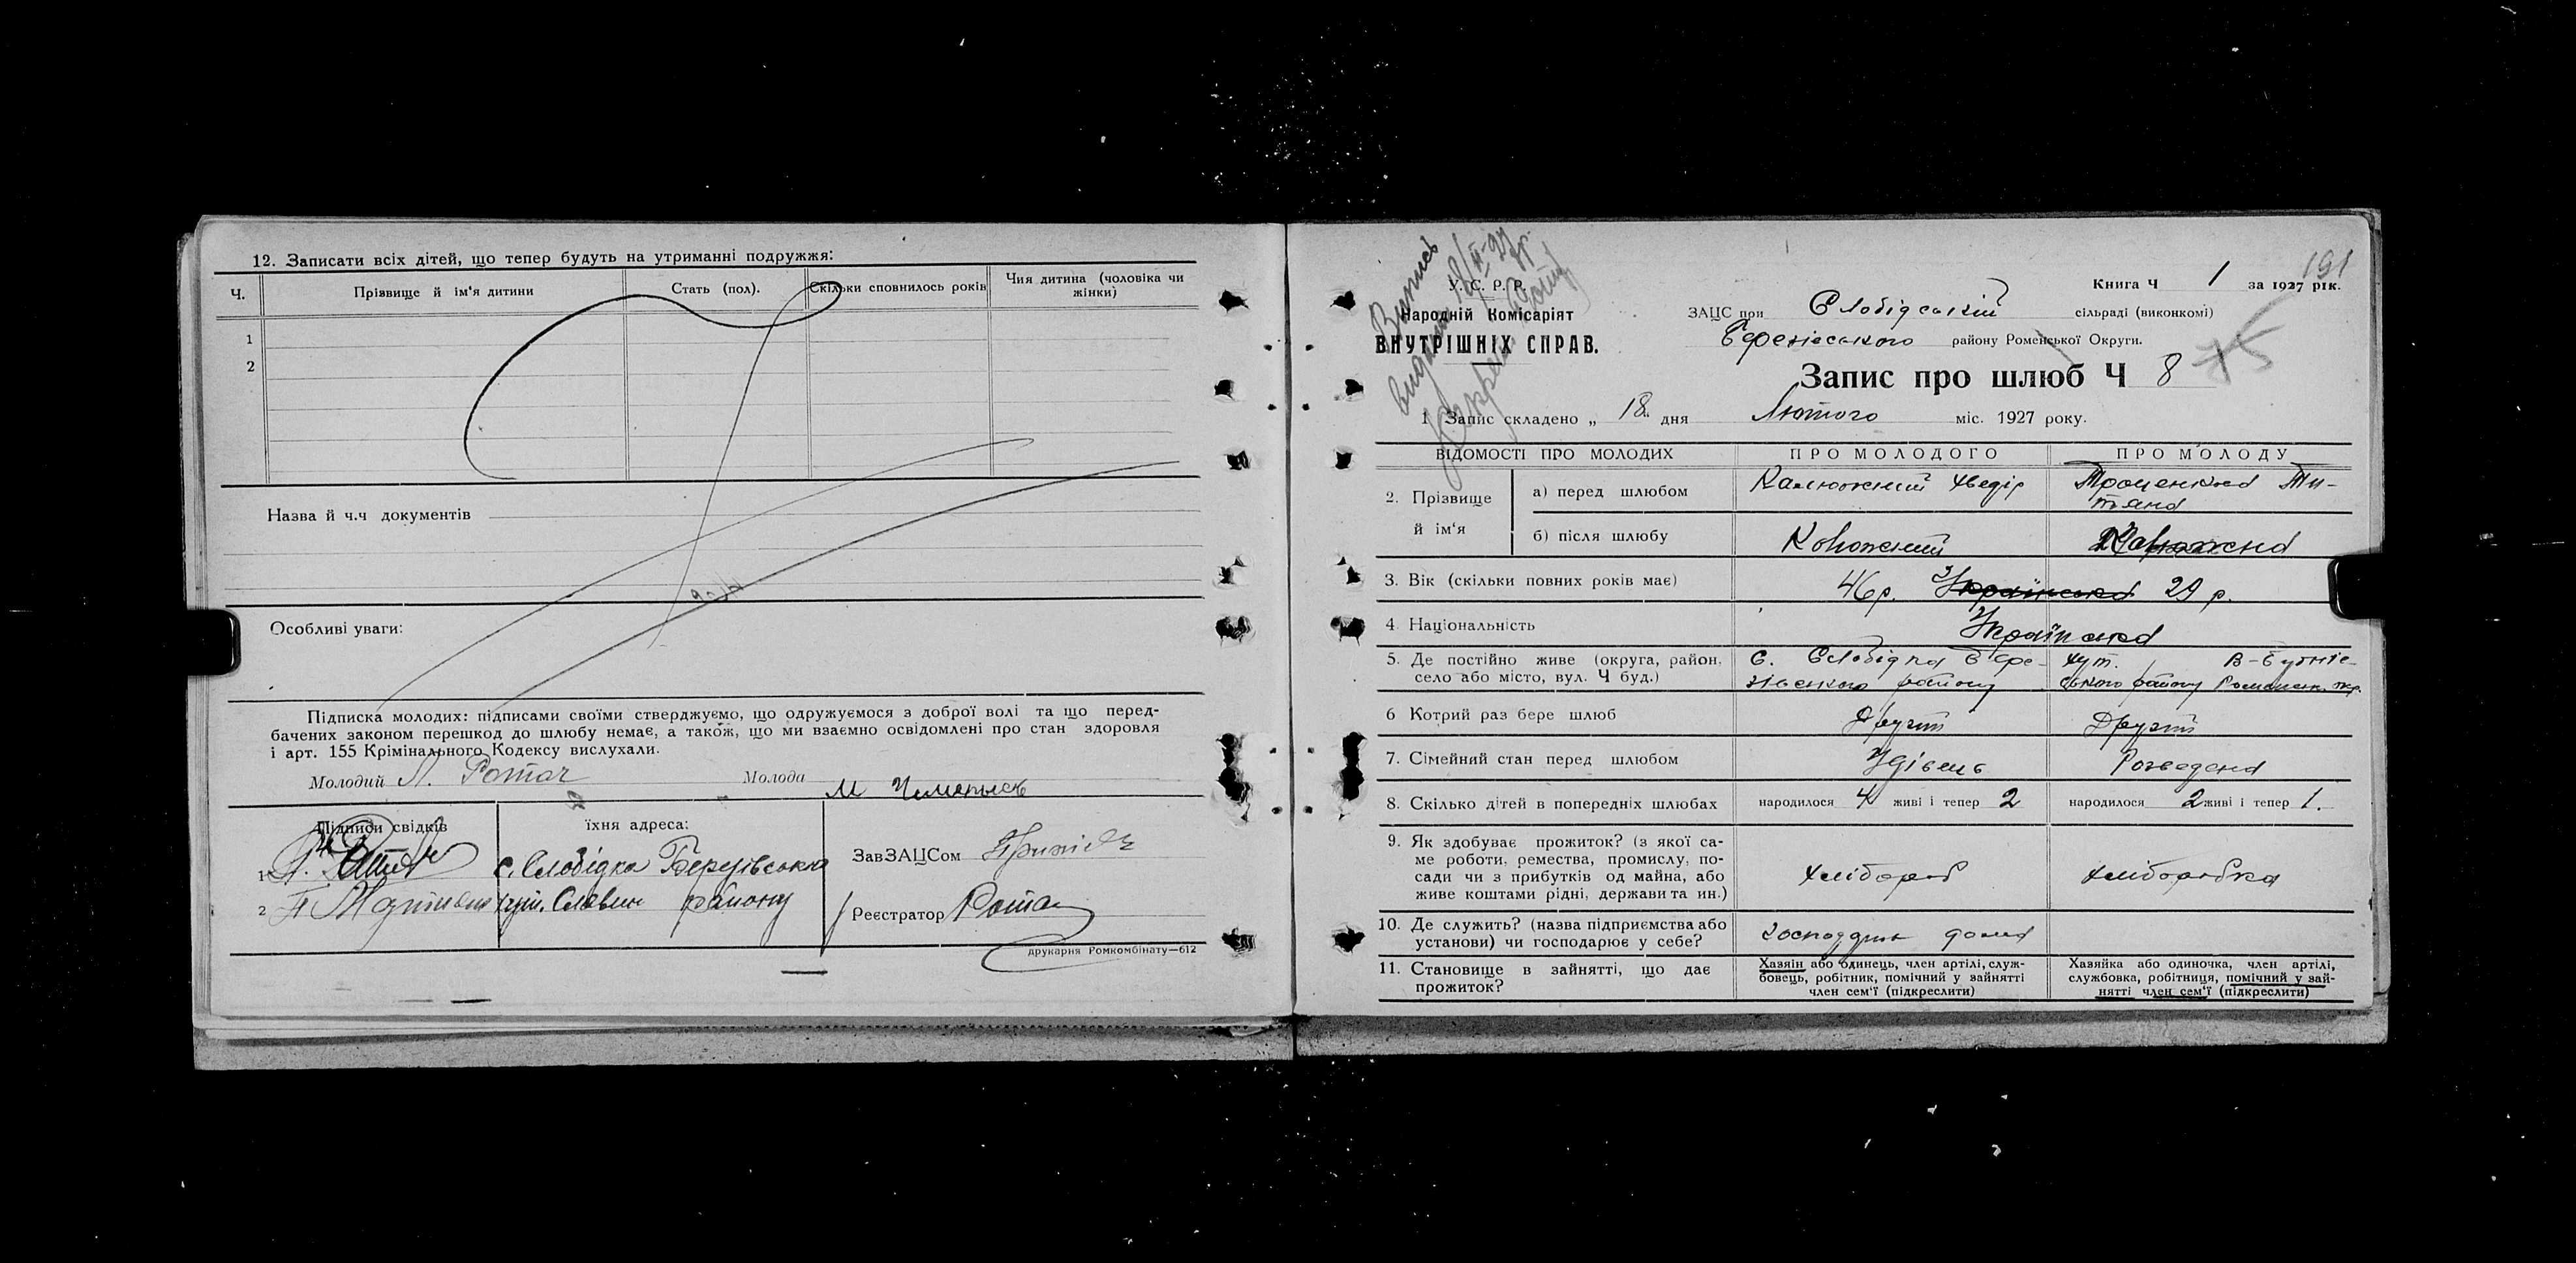 12. Записати всіх дітей, що тепер будуть на утриманні подружжя:
Ч. Прізвище й ім'я дитини Стать (пол). Скільки сповнилось років Чия дитина (чоловіка чи жінки)
1
2
Назва й ч.ч документів
Особливі уваги:
Підписка молодих: підписами своїми стверджуємо, що одружуємося з доброї волі та що перед-
бачених законом перешкод до шлюбу немає, а також, що ми взаємно освідомлені про стан здоровля
і арт. 155 Крімінального Кодексу вислухали.
Молодий Молода
Підписи свідків їхня адреса:
1 с. Слобідка Березівська
2 хут. району
ЗавЗАЦСом
Реєстратор
друкарня Ромкомбінату—612
191
Випись
У. С. Р. Р.
Народній Комісаріят
ВНУТРІШНІХ СПРАВ.
Книга Ч 1 за 1927 рік.
ЗАЦС при Слобідській сільраді (виконкомі)
району Роменської Округи.
Запис про шлюб Ч 8
75
1 Запис складено „ 18 " дня Лютого міс. 1927 року.
ВІДОМОСТІ ПРО МОЛОДИХ ПРО МОЛОДОГО ПРО МОЛОДУ
2. Прізвище й ім'я а) перед шлюбом Калюжний Хведір Троценко Ти-
тяна
б) після шлюбу
3. Вік (скільки повних років має) 46 р. Українська 29 р.
4. Національність Українська
5. Де постійно живе (округа, район, с. Слобідка хут.
село або місто, вул. Ч буд.) району ського району Роменськ. окр.
6 Котрий раз бере шлюб Другий Другий
7. Сімейний стан перед шлюбом Удівець Розведена
8. Скілько дітей в попередніх шлюбах народилося 4 живі і тепер 2 народилося 2 живі і тепер 1.
9. Як здобуває прожиток? (з якої са-
ме роботи, ремества, промислу, по-
сади чи з прибутків од майна, або
живе коштами рідні, держави та ин.) хлібороб хліборобка
10. Де служить? (назва підприємства або
установи) чи господарює у себе? дома
11. Становище в зайнятті, що дає
прожиток?
Хазяїн або одинець, член артілі, служ-
бовець, робітник, помічний у зайнятті
член сем'ї (підкреслити)
Хазяйка або одиночка, член артілі,
службовка, робітниця, помічний у зай-
нятті член сем'ї (підкреслити)